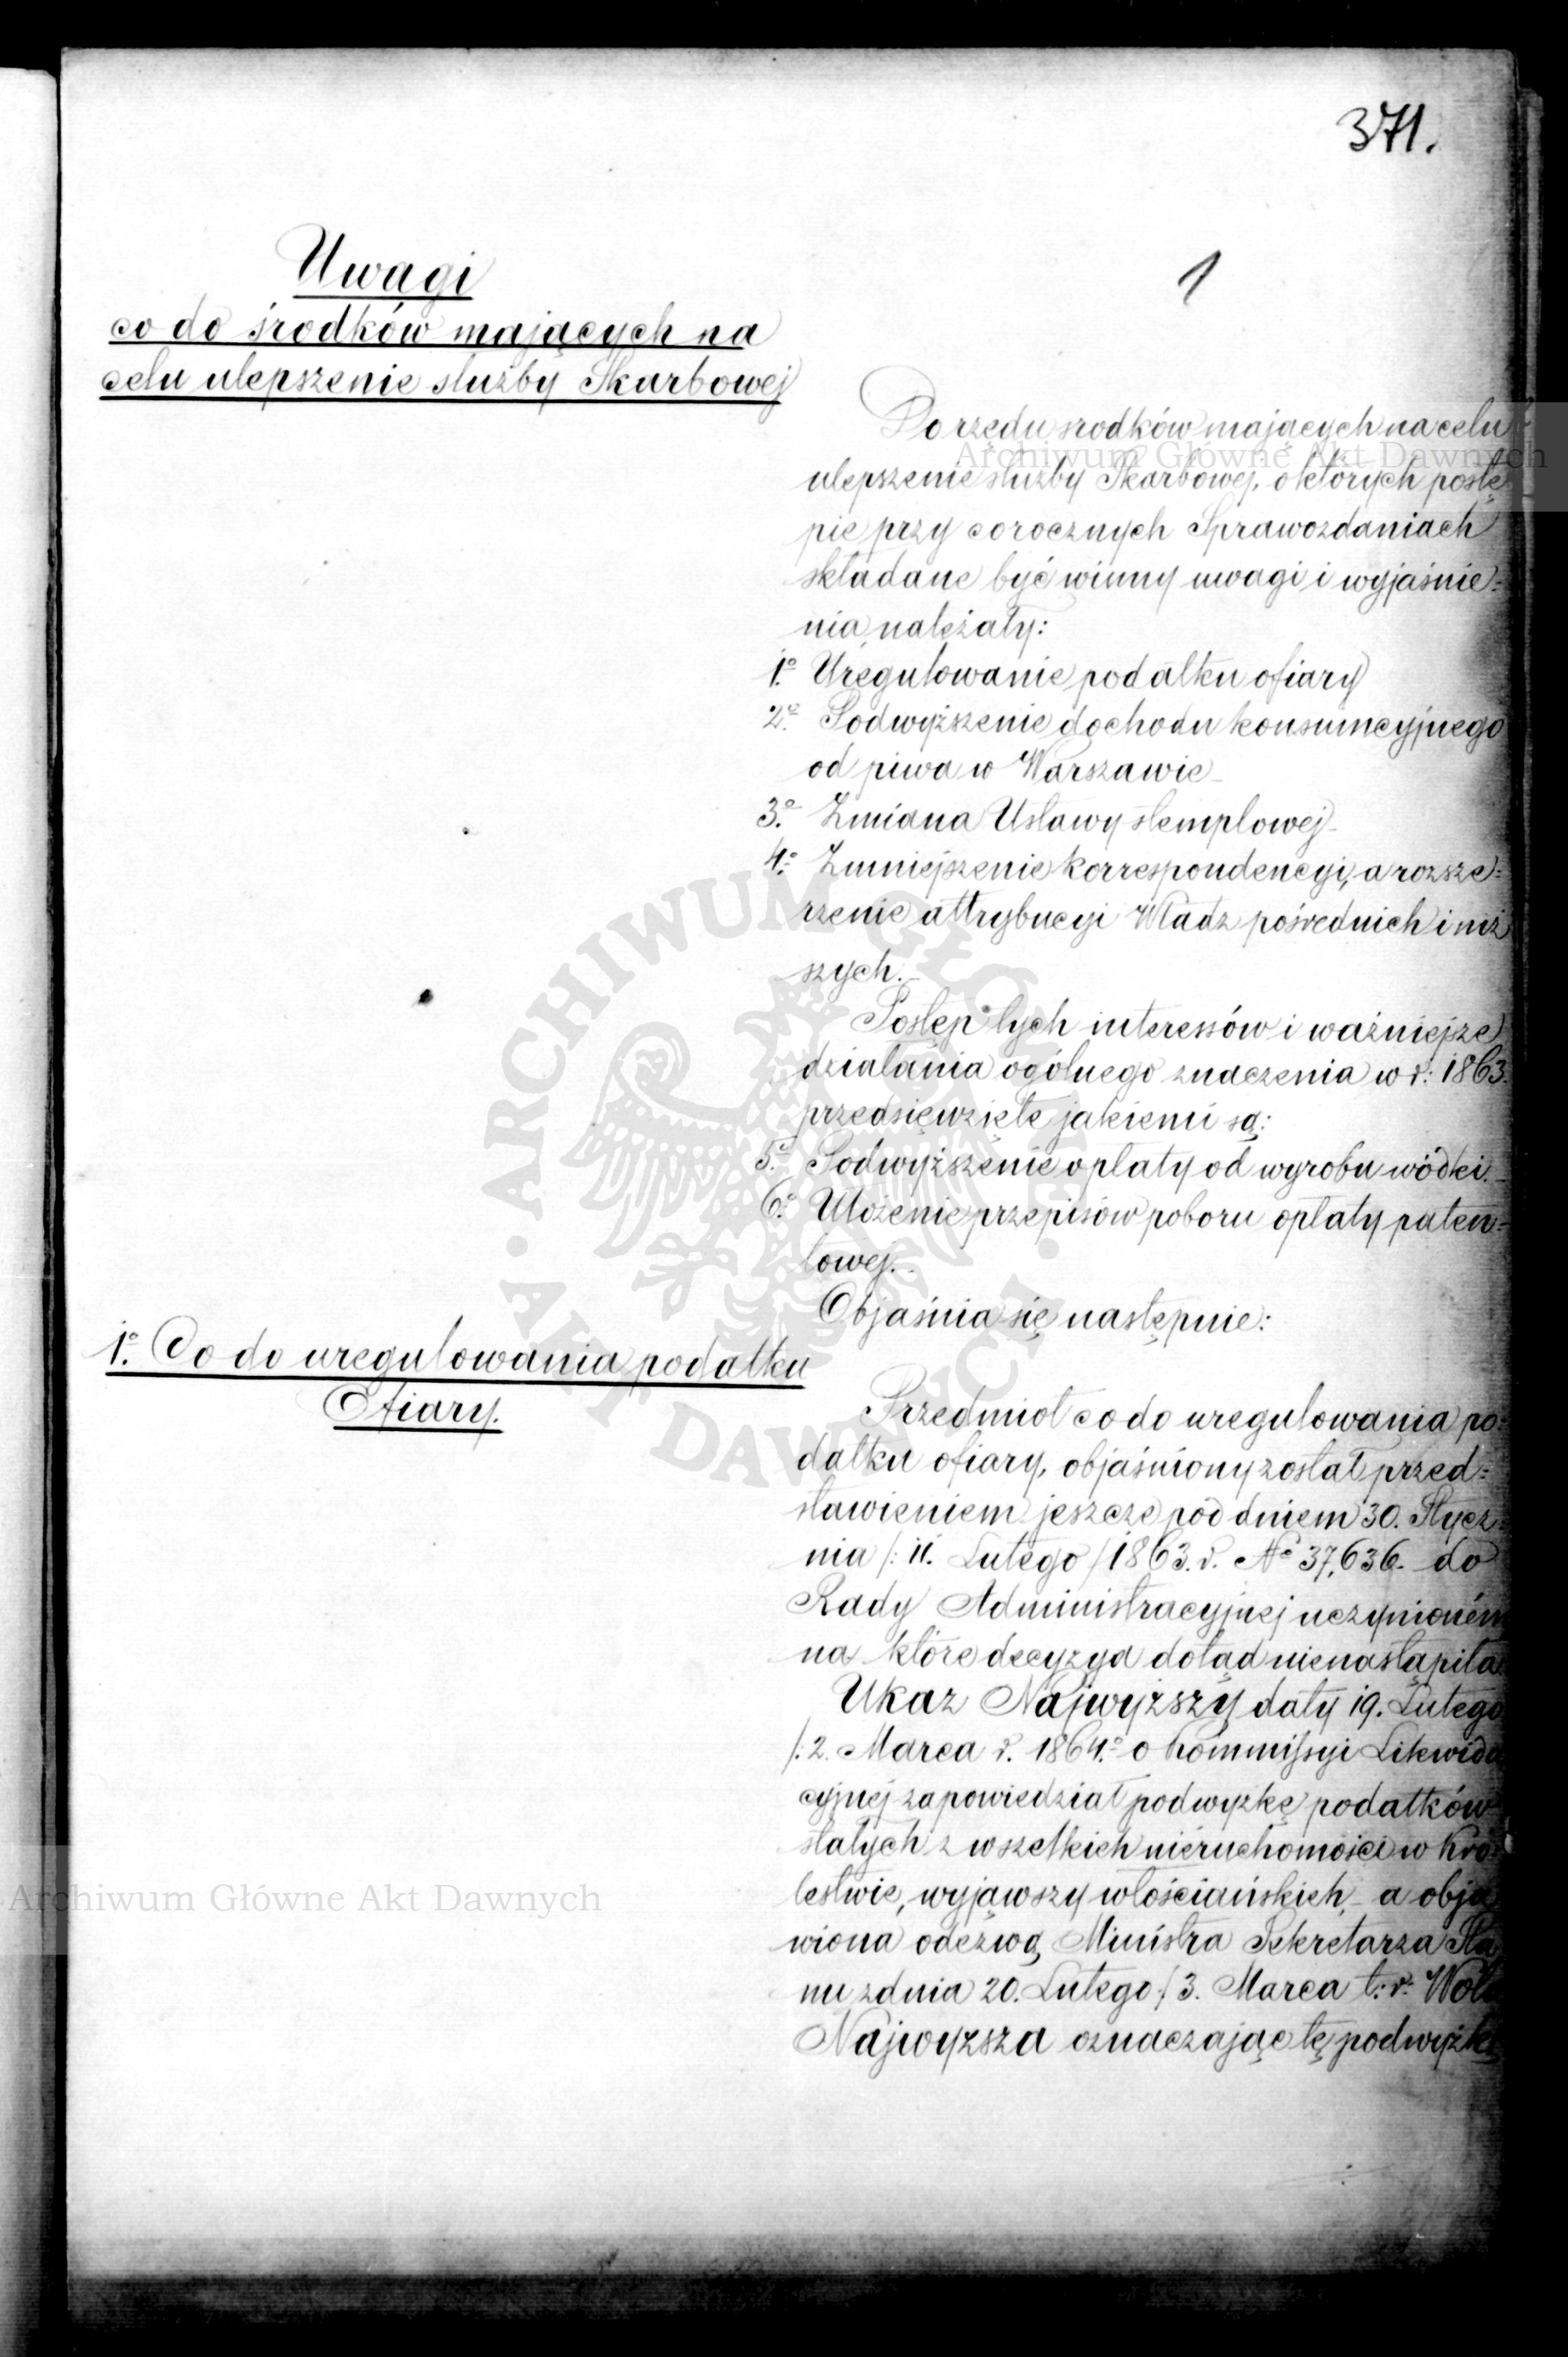 371.
1
Uwagi
co do środków mających na
celu ulepszenie służby Skarbowej
Do rzędu srodków mających na celu
ulepszenie służby Skarbowej, o których postę
pie przy corocznych Sprawozdaniach
składane być winny uwagi i wyjaśnie=
nia należały:
1.º Uregulowanie podatku ofiary
2.º Podwyższenie dochodu konsumcyjnego
od piwa w Warszawie
3.º Zmiana Ustawy stemplowej
4.º Zmniejszenie korrespondencyi, a rozsze=
rzenie attrybucyi Władz pośrednich i niż
szych.
Postęp tych interessów i ważniejsze
działania ogólnego znaczenia w r: 1863.
przedsięwzięte jakiemi są:
5.º Podwyższenie opłaty od wyrobu wódki.
6.º Ułożenie przepisów poboru opłaty paten=
towej.
Objaśnia się następnie:
1.º Co do uregulowania podatku
Ofiary.
Przedmiot co do uregulowania po=
datku ofiary, objaśniony został przed=
stawieniem jeszcze pod dniem 30. Stycz=
nia /: 11. Lutego / 1863. r. Nº 37,636. do
Rady Administracyjnej uczynioném
na które decyzya dotąd nienastąpiła
Ukaz Najwyższy daty 19. Lutego
/: 2. Marca r. 1864.º o Kommissyi Likwida
cyjnej zapowiedział podwyżkę podatków
stałych z wszelkich nieruchomości w Kró=
lestwie, wyjąwszy włościańskich, a obja
wiona odezwą Ministra Sekretarza Sta
nu z dnia 20. Lutego / 3. Marca t. r. Wola
Najwyższa oznaczając tę podwyżkę
Archiwum Główne Akt Dawnych
Archiwum Główne Akt Dawnych
ARCHIWUM GŁÓWNE AKT DAWNYCH